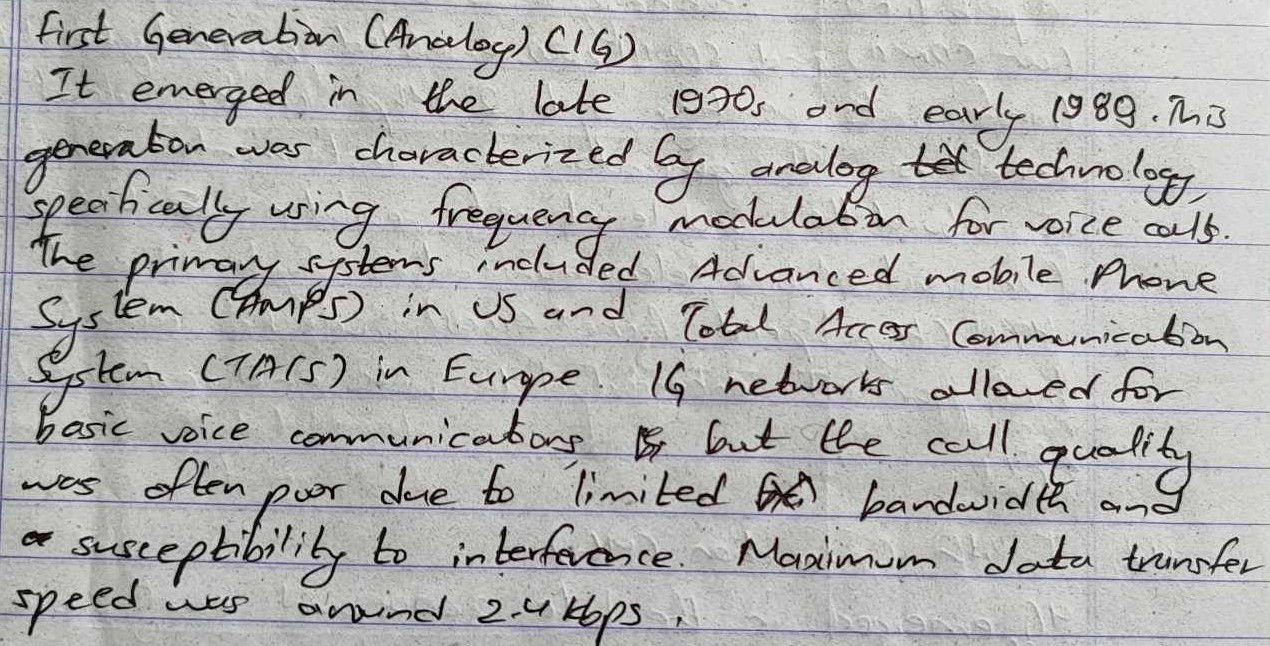 First Generation (Analog) (1G)
It emerged in the late 1970s and early 1989. This
generation was characterized by analog technology,
specifically using frequency modulation for voice calls.
The primary systems included Advanced mobile Phone
System (AMPS) in US and Total Access Communication
System (TACS) in Europe. 1G networks allowed for
basic voice communications, but the call quality
was often poor due to limited bandwidth and
susceptibility to interference. Maximum data transfer
speed was around 2.4 kbps.